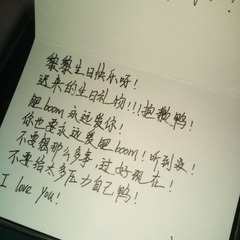 黎黎生日快乐呀！
迟来的生日礼物！！！抱歉鸭！
肥boom永远爱你！
你也要永远爱肥boom！听到没！
不要想那么多事，过好现在！
不要给太多压力自己鸭！
I love you！